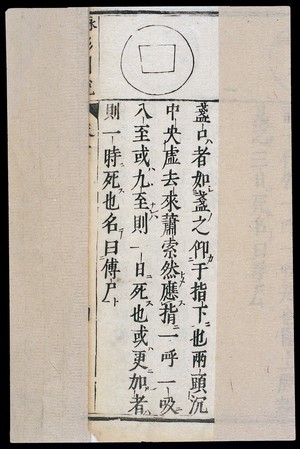 盞口者如盞之仰于指下也兩頭沉
中央虛去來蕭索然應指一呼一吸
八至或九至則一日死也或更加者
則一時死也名曰傅尸